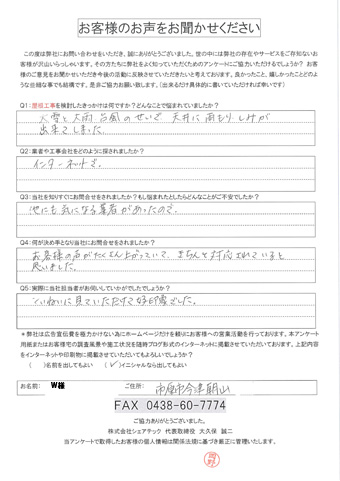 お客様のお声をお聞かせください
この度は弊社にお問い合わせをいただき、誠にありがとうございました。世の中には弊社の存在やサービスをご存知ないお
客様が沢山いらっしゃいます。その方たちに弊社をよく知っていただくためのアンケートにご協力いただけるでしょうか? お客
様のご意見をお聞かせいただき今後の活動に反映させていただきたいと考えております。良かったこと、嬉しかったことどのよ
うな些細な事でも結構です。是非ご協力お願い致します。(出来るだけ具体的に書いていただければ幸いです)
Q1:屋根工事を検討したきっかけは何ですか?どんなことで悩まれていましたか?
大雪と大雨 台風のせいで 天井に雨もりしみが
出来てしまった
Q2:業者や工事会社をどのように探されましたか?
インターネットで。
Q3:当社を知りすぐにお問合せをされましたか?もし悩まれたとしたらどんなことがご不安でしたか?
他にも気になる業者があったので。
Q4:何が決め手となり当社にお問合せをされましたか?
お客様の声がたくさん上がっていて、きちんと対応されていると
思いました。
Q5:実際に当社担当者がお伺いしていかがでしたでしょうか?
ていねいに見ていただけて好印象でした。
*弊社は広告宣伝費を極力かけない為にホームページだけを頼りにお客様への営業活動を行っております。本アンケート
用紙またはお客様宅での調査風景や施工状況を随時ブログ形式のインターネットに掲載させていただいております。上記内容
をインターネットや印刷物に掲載させていただいてもよろしいでしょうか?
( )名前を出してもよい (✓)イニシャルなら出してもよい
お名前: W様 ご住所: 市原市今津朝山
FAX 0438-60-7774
ご協力ありがとうございました。
株式会社シェアテック 代表取締役 大久保 誠二
当アンケートで取得したお客様の個人情報は関係法規に基づき厳正に管理いたします。